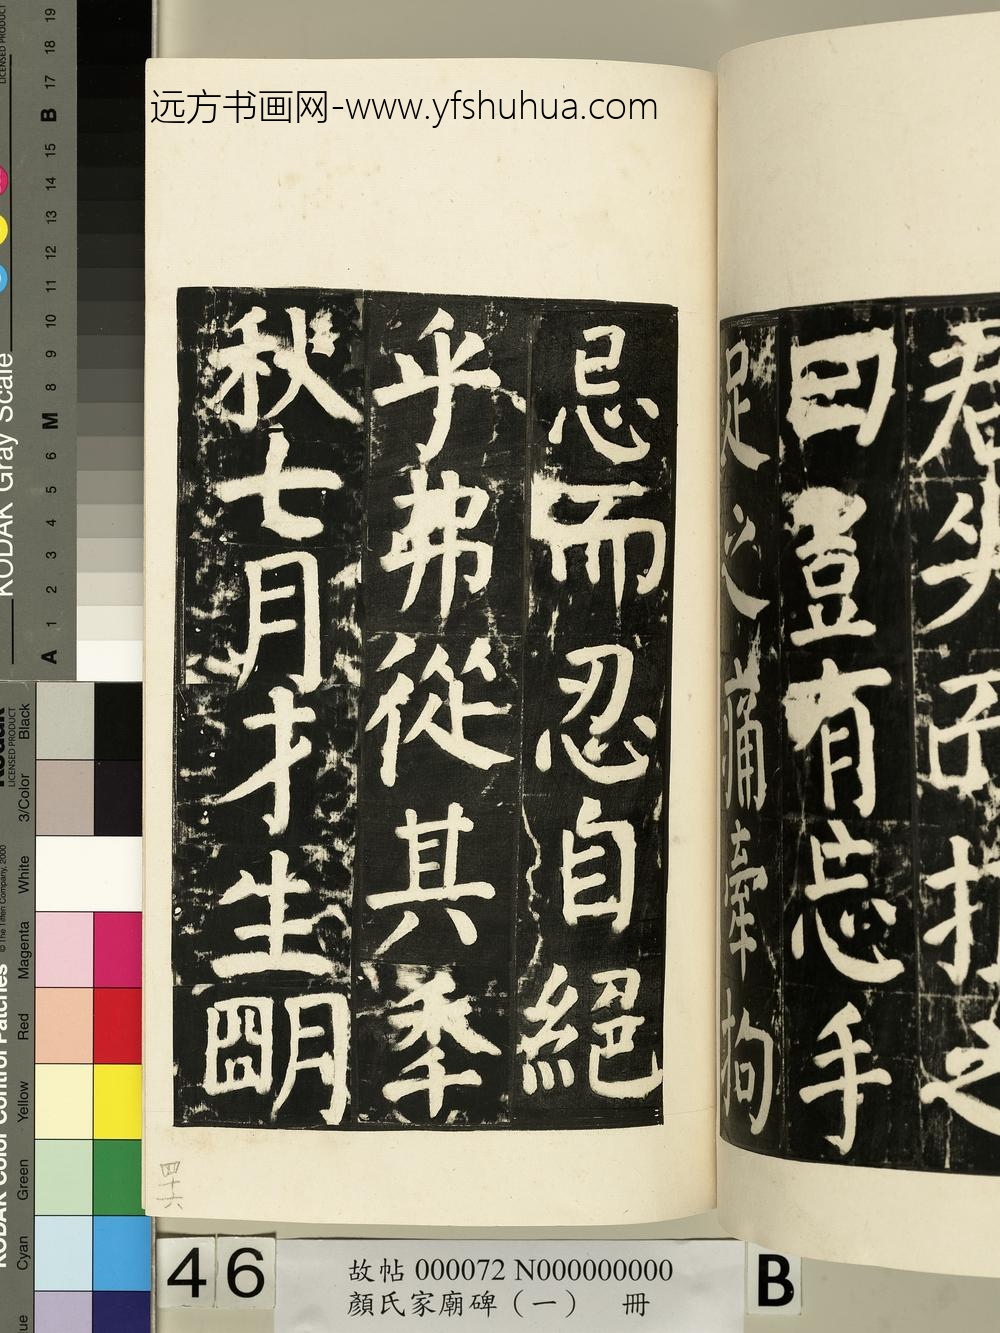 远方书画网-www.yfshuhua.com
曰豈有忘手
足之痛牽拘
忌而忍自絕
乎弗從其季
秋七月才生朙
四十六
46
故帖 000072 N000000000
顏氏家廟碑（一） 冊
B
KODAK Gray Scale
LICENSED PRODUCT
A 1 2 3 4 5 6 M 8 9 10 11 12 13 14 15 B 17 18 19
KODAK Color Control Patches
© The Tiffen Company, 2000
Kodak
LICENSED PRODUCT
Cyan
Green
Yellow
Red
Magenta
White
3/Color
Black